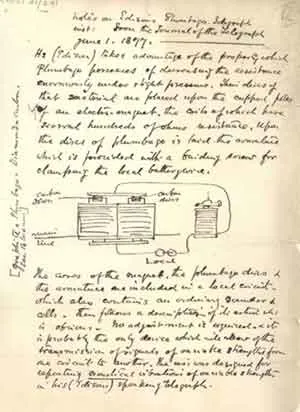 notes on Edison's Plumbago Telegraph
From the Journal of the Telegraph
June 1. 1877.
He (Edison) takes advantage of the property which
plumbago possesses of decreasing its resistance
enormously under slight pressure. Thin discs of
that material are placed upon the support poles
of an electro-magnet, the coils of which have
several hundreds of ohms resistance. Upon
the discs of plumbago is laid the armature
which is provided with a binding screw for
clamping the local battery wire.
carbon discs
carbon discs
main line
Local
The cores of the magnet, the plumbago discs &
the armature are included in a local circuit
which also contains an ordinary sounder &
cells. Then follows a description of its action which
is obvious. No adjustment is required & it
is probably the only device which will allow of the
transmission of signals of variable strengths from
one circuit to another. It was designed for
repeating acoustical vibrations of variable strengths
in his (Edison) speaking telegraph.